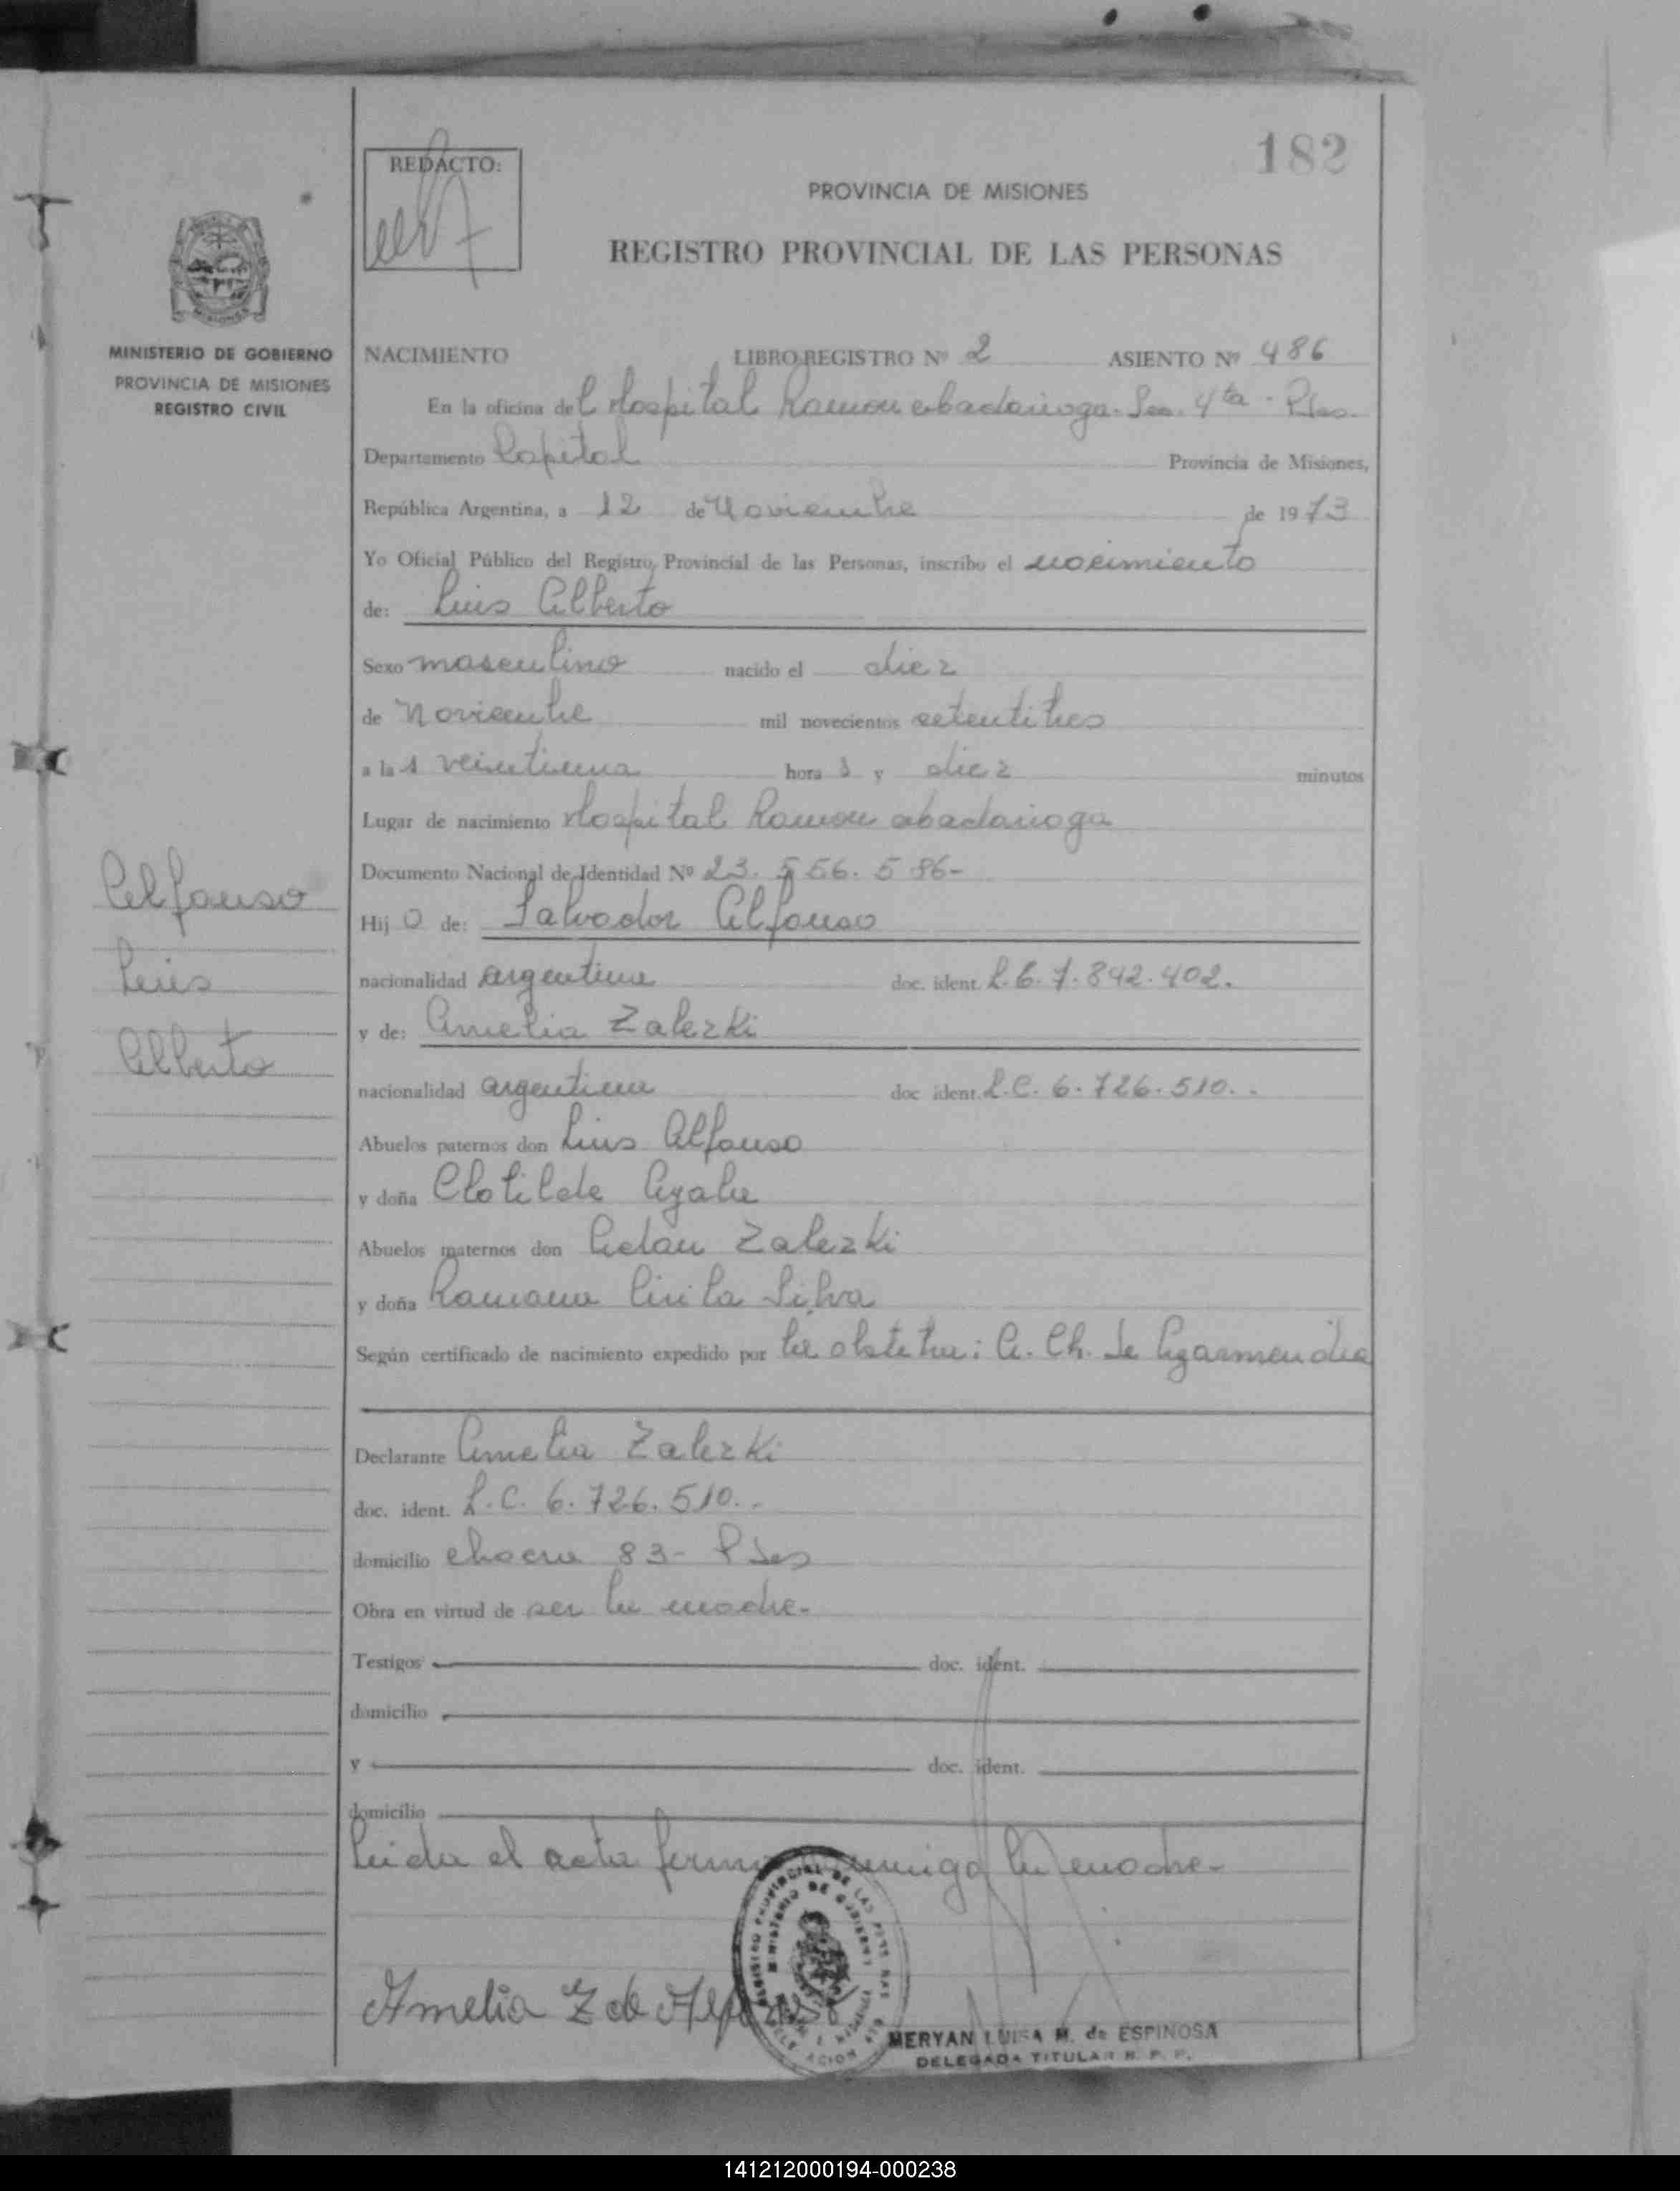 182
REDACTO:
PROVINCIA DE MISIONES
REGISTRO PROVINCIAL DE LAS PERSONAS
MINISTERIO DE GOBIERNO
PROVINCIA DE MISIONES
REGISTRO CIVIL
NACIMIENTO LIBRO REGISTRO Nº 2 ASIENTO Nº 486
En la oficina del Hospital Ramon Madariaga. Sec. 4ta - Pdas.
Departamento Capital Provincia de Misiones,
República Argentina, a 12 de Noviembre de 1973
Yo Oficial Público del Registro Provincial de las Personas, inscribo el nacimiento
de: Luis Alberto
Sexo masculino nacido el diez
de Noviembre mil novecientos setentitres
a las veintiuna horas y diez minutos
Lugar de nacimiento Hospital Ramon Madariaga
Documento Nacional de Identidad Nº 23.556.586-
Hijo de: Salvador Alfonso
nacionalidad argentina doc. ident. L.E. 7.842.402.
y de: Amelia Zalezki
nacionalidad argentina doc ident. L.C. 6.726.510..
Abuelos paternos don Luis Alfonso
y doña Clotilde Ayala
Abuelos maternos don Adan Zalezki
y doña Ramona Cirila Silva
Según certificado de nacimiento expedido por la obstetra: A. Ch. de Agarmendia
Declarante Amelia Zalezki
doc. ident. L.C. 6.726.510..
domicilio chacra 83- Pdas
Obra en virtud de ser la madre.
Testigos doc. ident.
domicilio
y doc. ident.
domicilio
Leida el acta firma conmigo la madre.
Amelia Z de Alfonso
MERYAN LUISA M. de ESPINOSA
DELEGADA TITULAR R. P. P.
Alfonso
Luis
Alberto
141212000194-000238